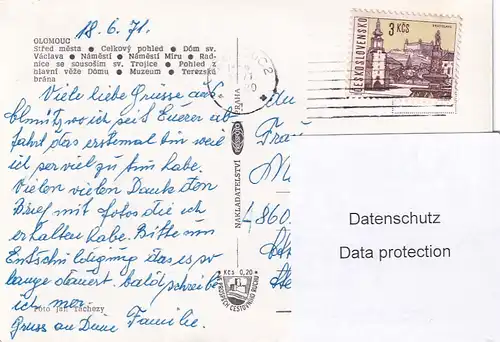 18. 6. 71.
OLOMOUC
Střed města ● Celkový pohled ● Dóm sv.
Václava ● Náměstí ● Náměstí Míru ● Rad-
nice se sousoším sv. Trojice ● Pohled z
hlavní věže Dómu ● Muzeum ● Terezská
brána
Viele liebe Grüsse aus
Olmütz wo ich seit Eurer ab
fahrt das erstemal bin weil
ich ser viel zu tun habe.
Vielen vielen Dank den
Brief mit fotos die ich
erhalten habe. Bitte um
Entschuldigung das es so
lange dauert. bald schreibe
ich mer.
Gruss an Deine Familie.
Foto Jan Táchezy
NAKLADATELSTVÍ
PRAHA
Kčs 0,20
VE PROSPĚCH CESTOVNÍHO RUCHU
ČESKOSLOVENSKO
3 KČS
BRATISLAVA
Frau
4860
Datenschutz
Data protection